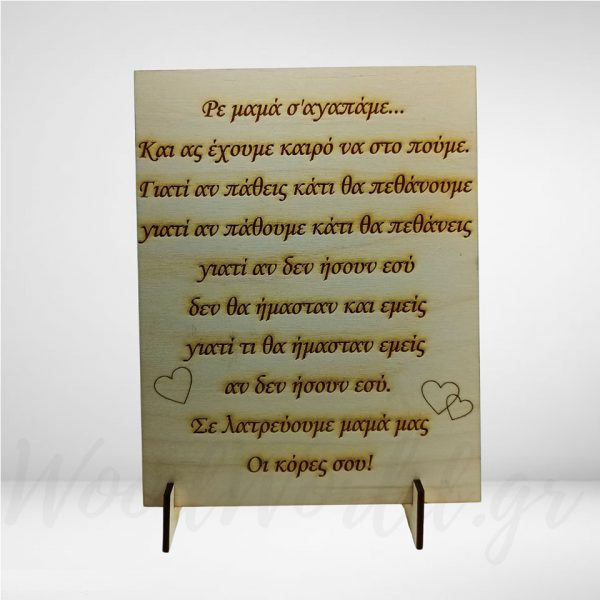 Ρε μαμά σ'αγαπάμε...
Και ας έχουμε καιρό να στο πούμε.
Γιατί αν πάθεις κάτι θα πεθάνουμε
γιατί αν πάθουμε κάτι θα πεθάνεις
γιατί αν δεν ήσουν εσύ
δεν θα ήμασταν και εμείς
γιατί τι θα ήμασταν εμείς
αν δεν ήσουν εσύ.
Σε λατρεύουμε μαμά μας
Οι κόρες σου!
WoodWorld.gr